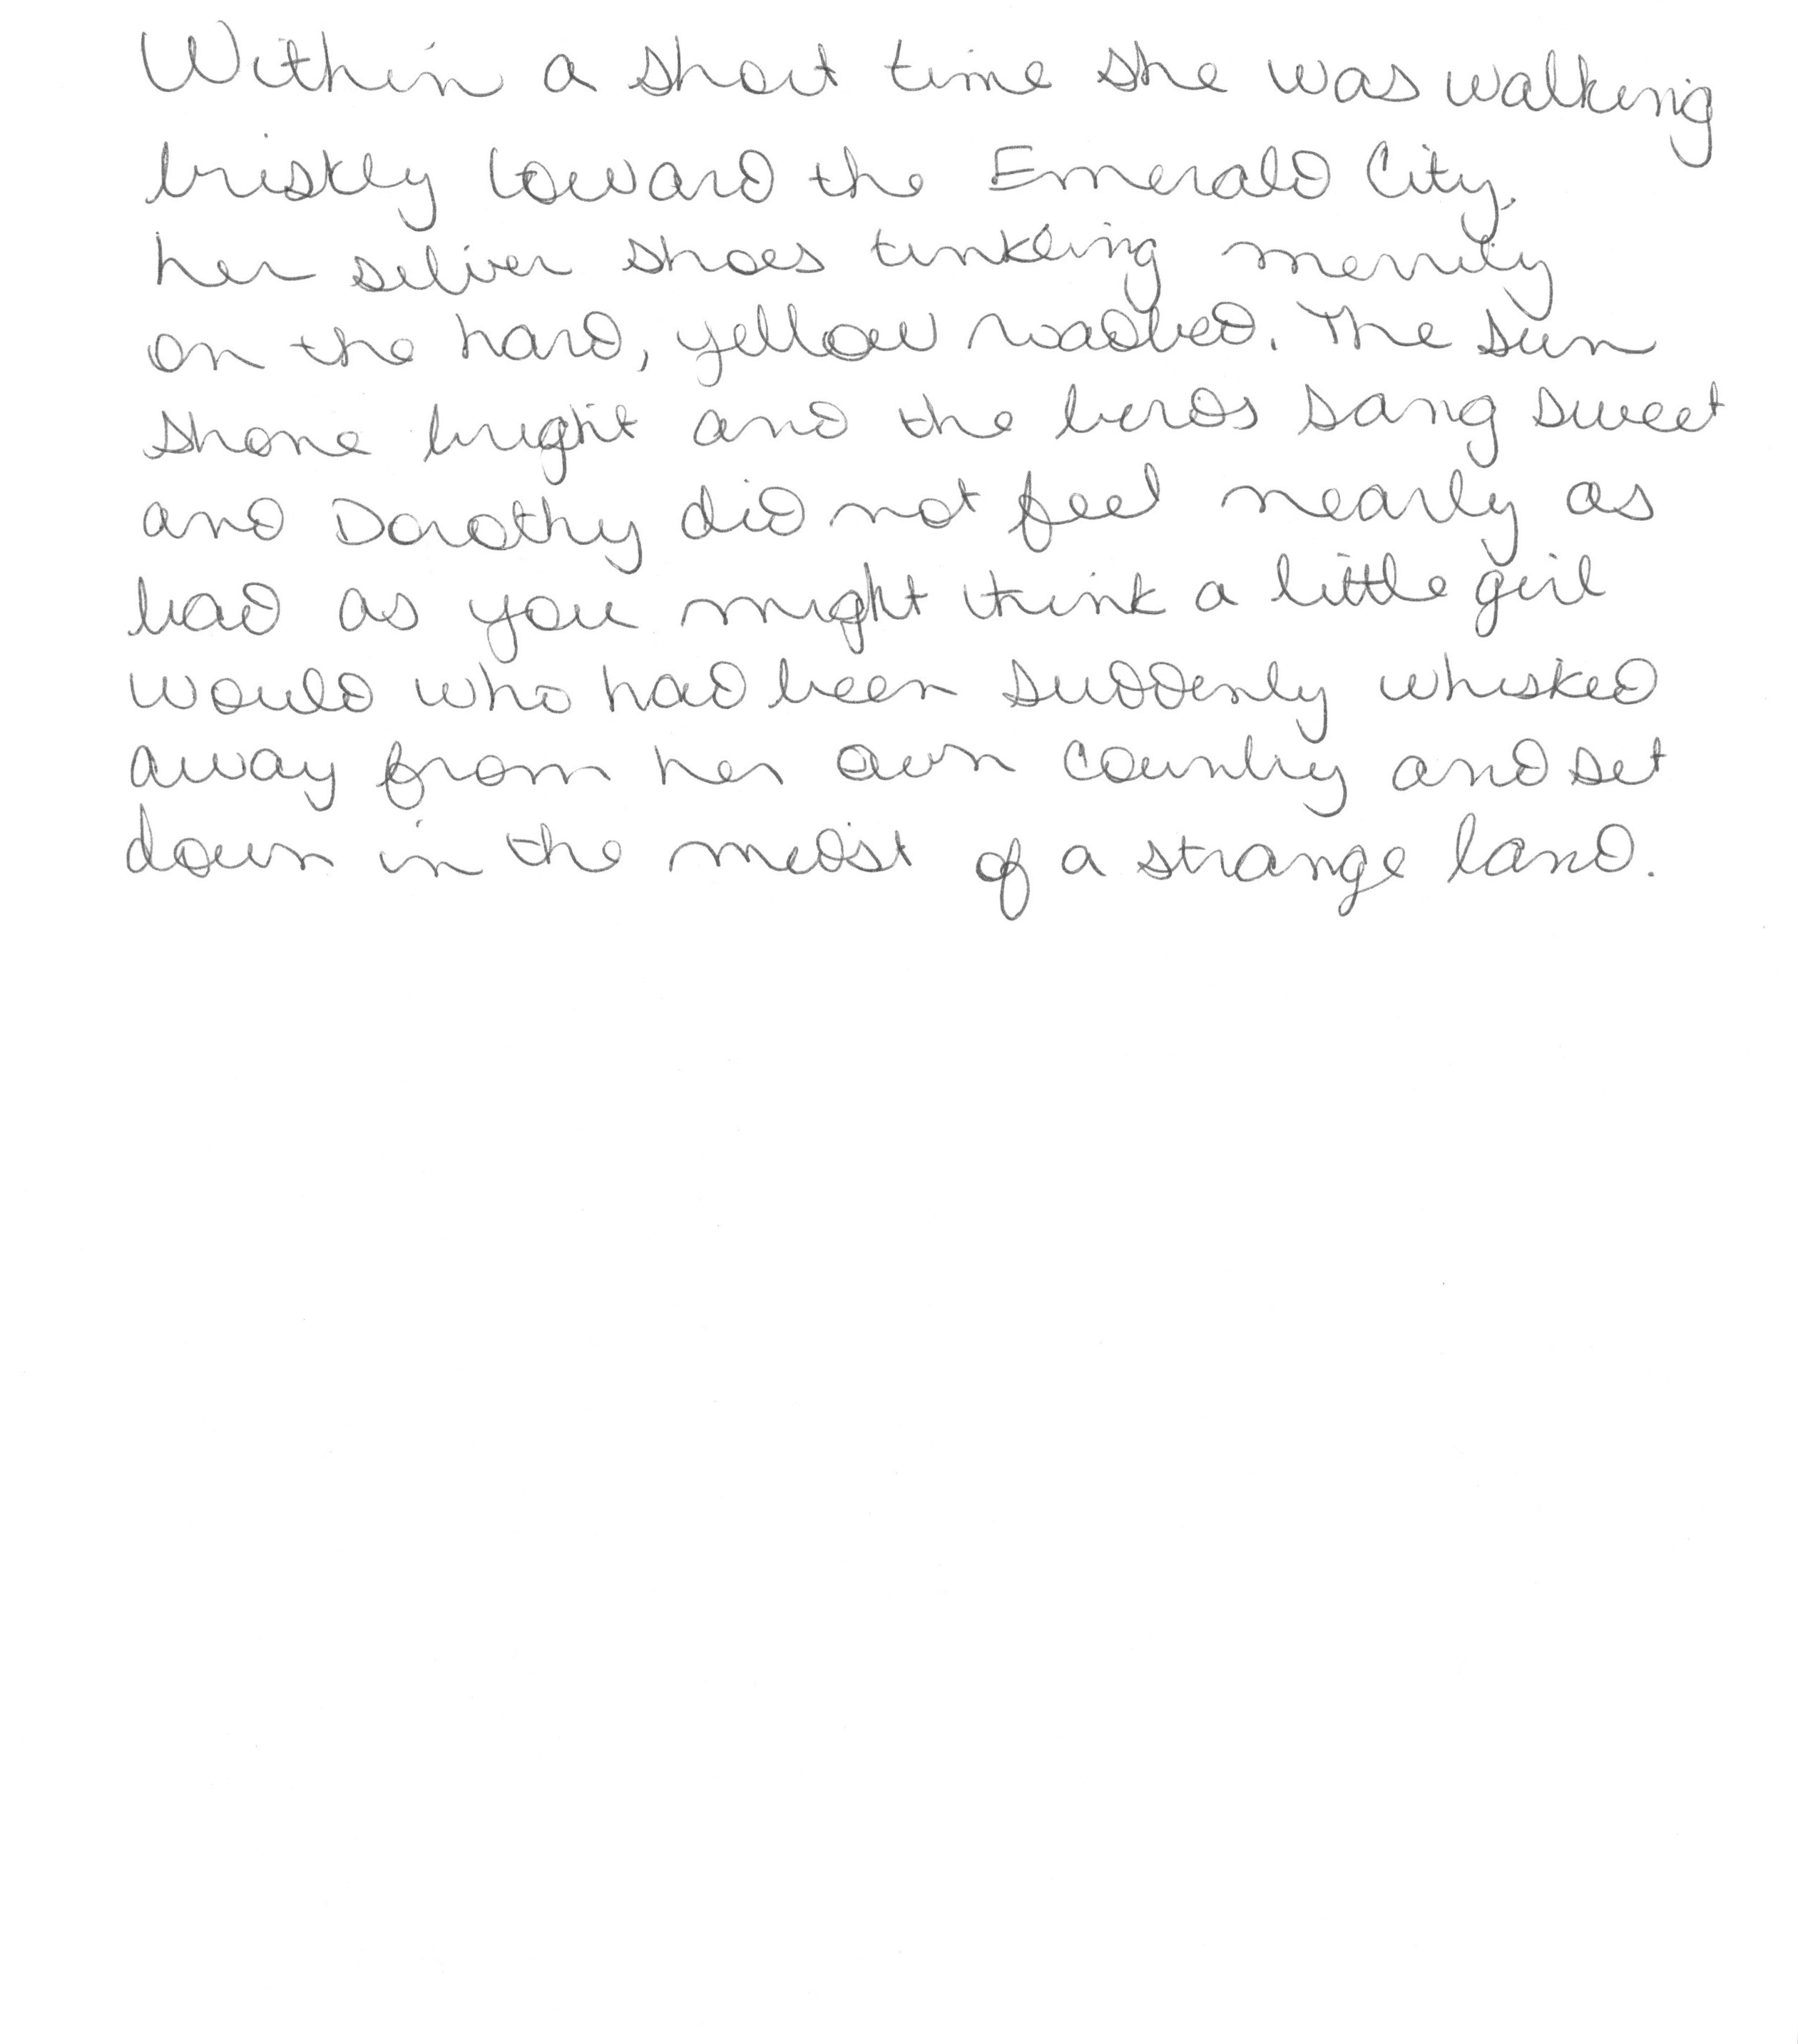 Within a short time she was walking
briskly toward the Emerald City,
her silver shoes tinkling merrily
on the hard, yellow roadbed. The sun
shone bright and the birds sang sweet
and Dorothy did not feel nearly as
bad as you might think a little girl
would who had been suddenly whisked
away from her own country and set
down in the midst of a strange land.